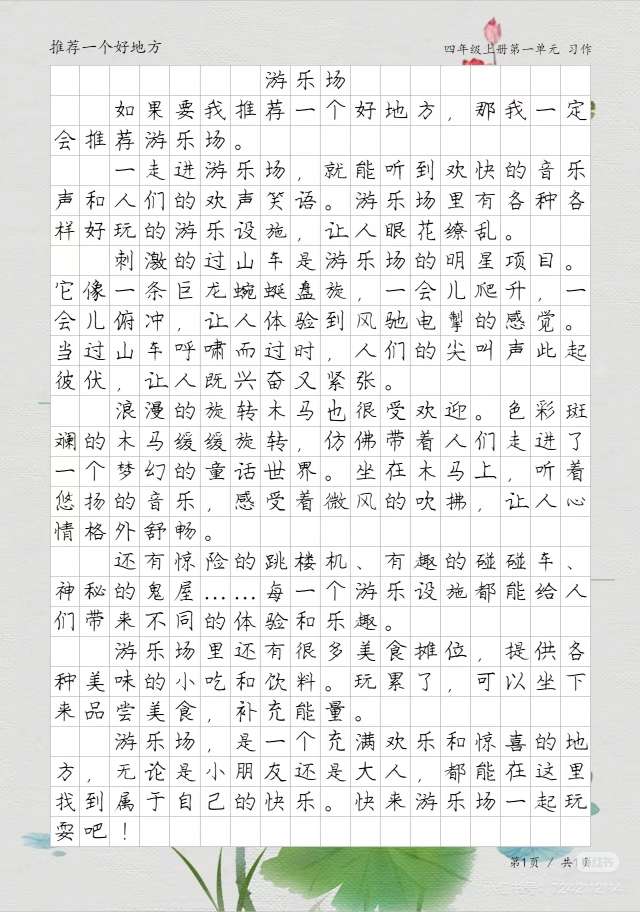 推荐一个好地方
四年级上册第一单元 习作
游乐场
如果要我推荐一个好地方，那我一定
会推荐游乐场。
一走进游乐场，就能听到欢快的音乐
声和人们的欢声笑语。游乐场里有各种各
样好玩的游乐设施，让人眼花缭乱。
刺激的过山车是游乐场的明星项目。
它像一条巨龙蜿蜒盘旋，一会儿爬升，一
会儿俯冲，让人体验到风驰电掣的感觉。
当过山车呼啸而过时，人们的尖叫声此起
彼伏，让人既兴奋又紧张。
浪漫的旋转木马也很受欢迎。色彩斑
斓的木马缓缓旋转，仿佛带着人们走进了
一个梦幻的童话世界。坐在木马上，听着
悠扬的音乐，感受着微风的吹拂，让人心
情格外舒畅。
还有惊险的跳楼机、有趣的碰碰车、
神秘的鬼屋……每一个游乐设施都能给人
们带来不同的体验和乐趣。
游乐场里还有很多美食摊位，提供各
种美味的小吃和饮料。玩累了，可以坐下
来品尝美食，补充能量。
游乐场，是一个充满欢乐和惊喜的地
方，无论是小朋友还是大人，都能在这里
找到属于自己的快乐。快来游乐场一起玩
耍吧！
第1页 / 共1页